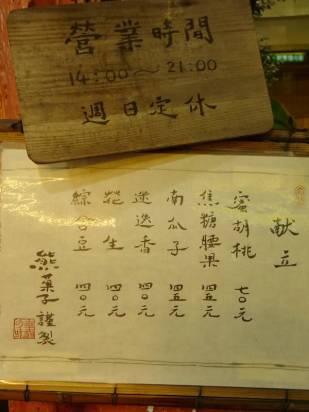 營業時間
14:00～21:00
週日定休
献立
蜜胡桃 七〇元
焦糖腰果 四五元
南瓜子 四五元
迷迭香 四〇元
花生 四〇元
綜合豆 四〇元
熊菓子 謹製